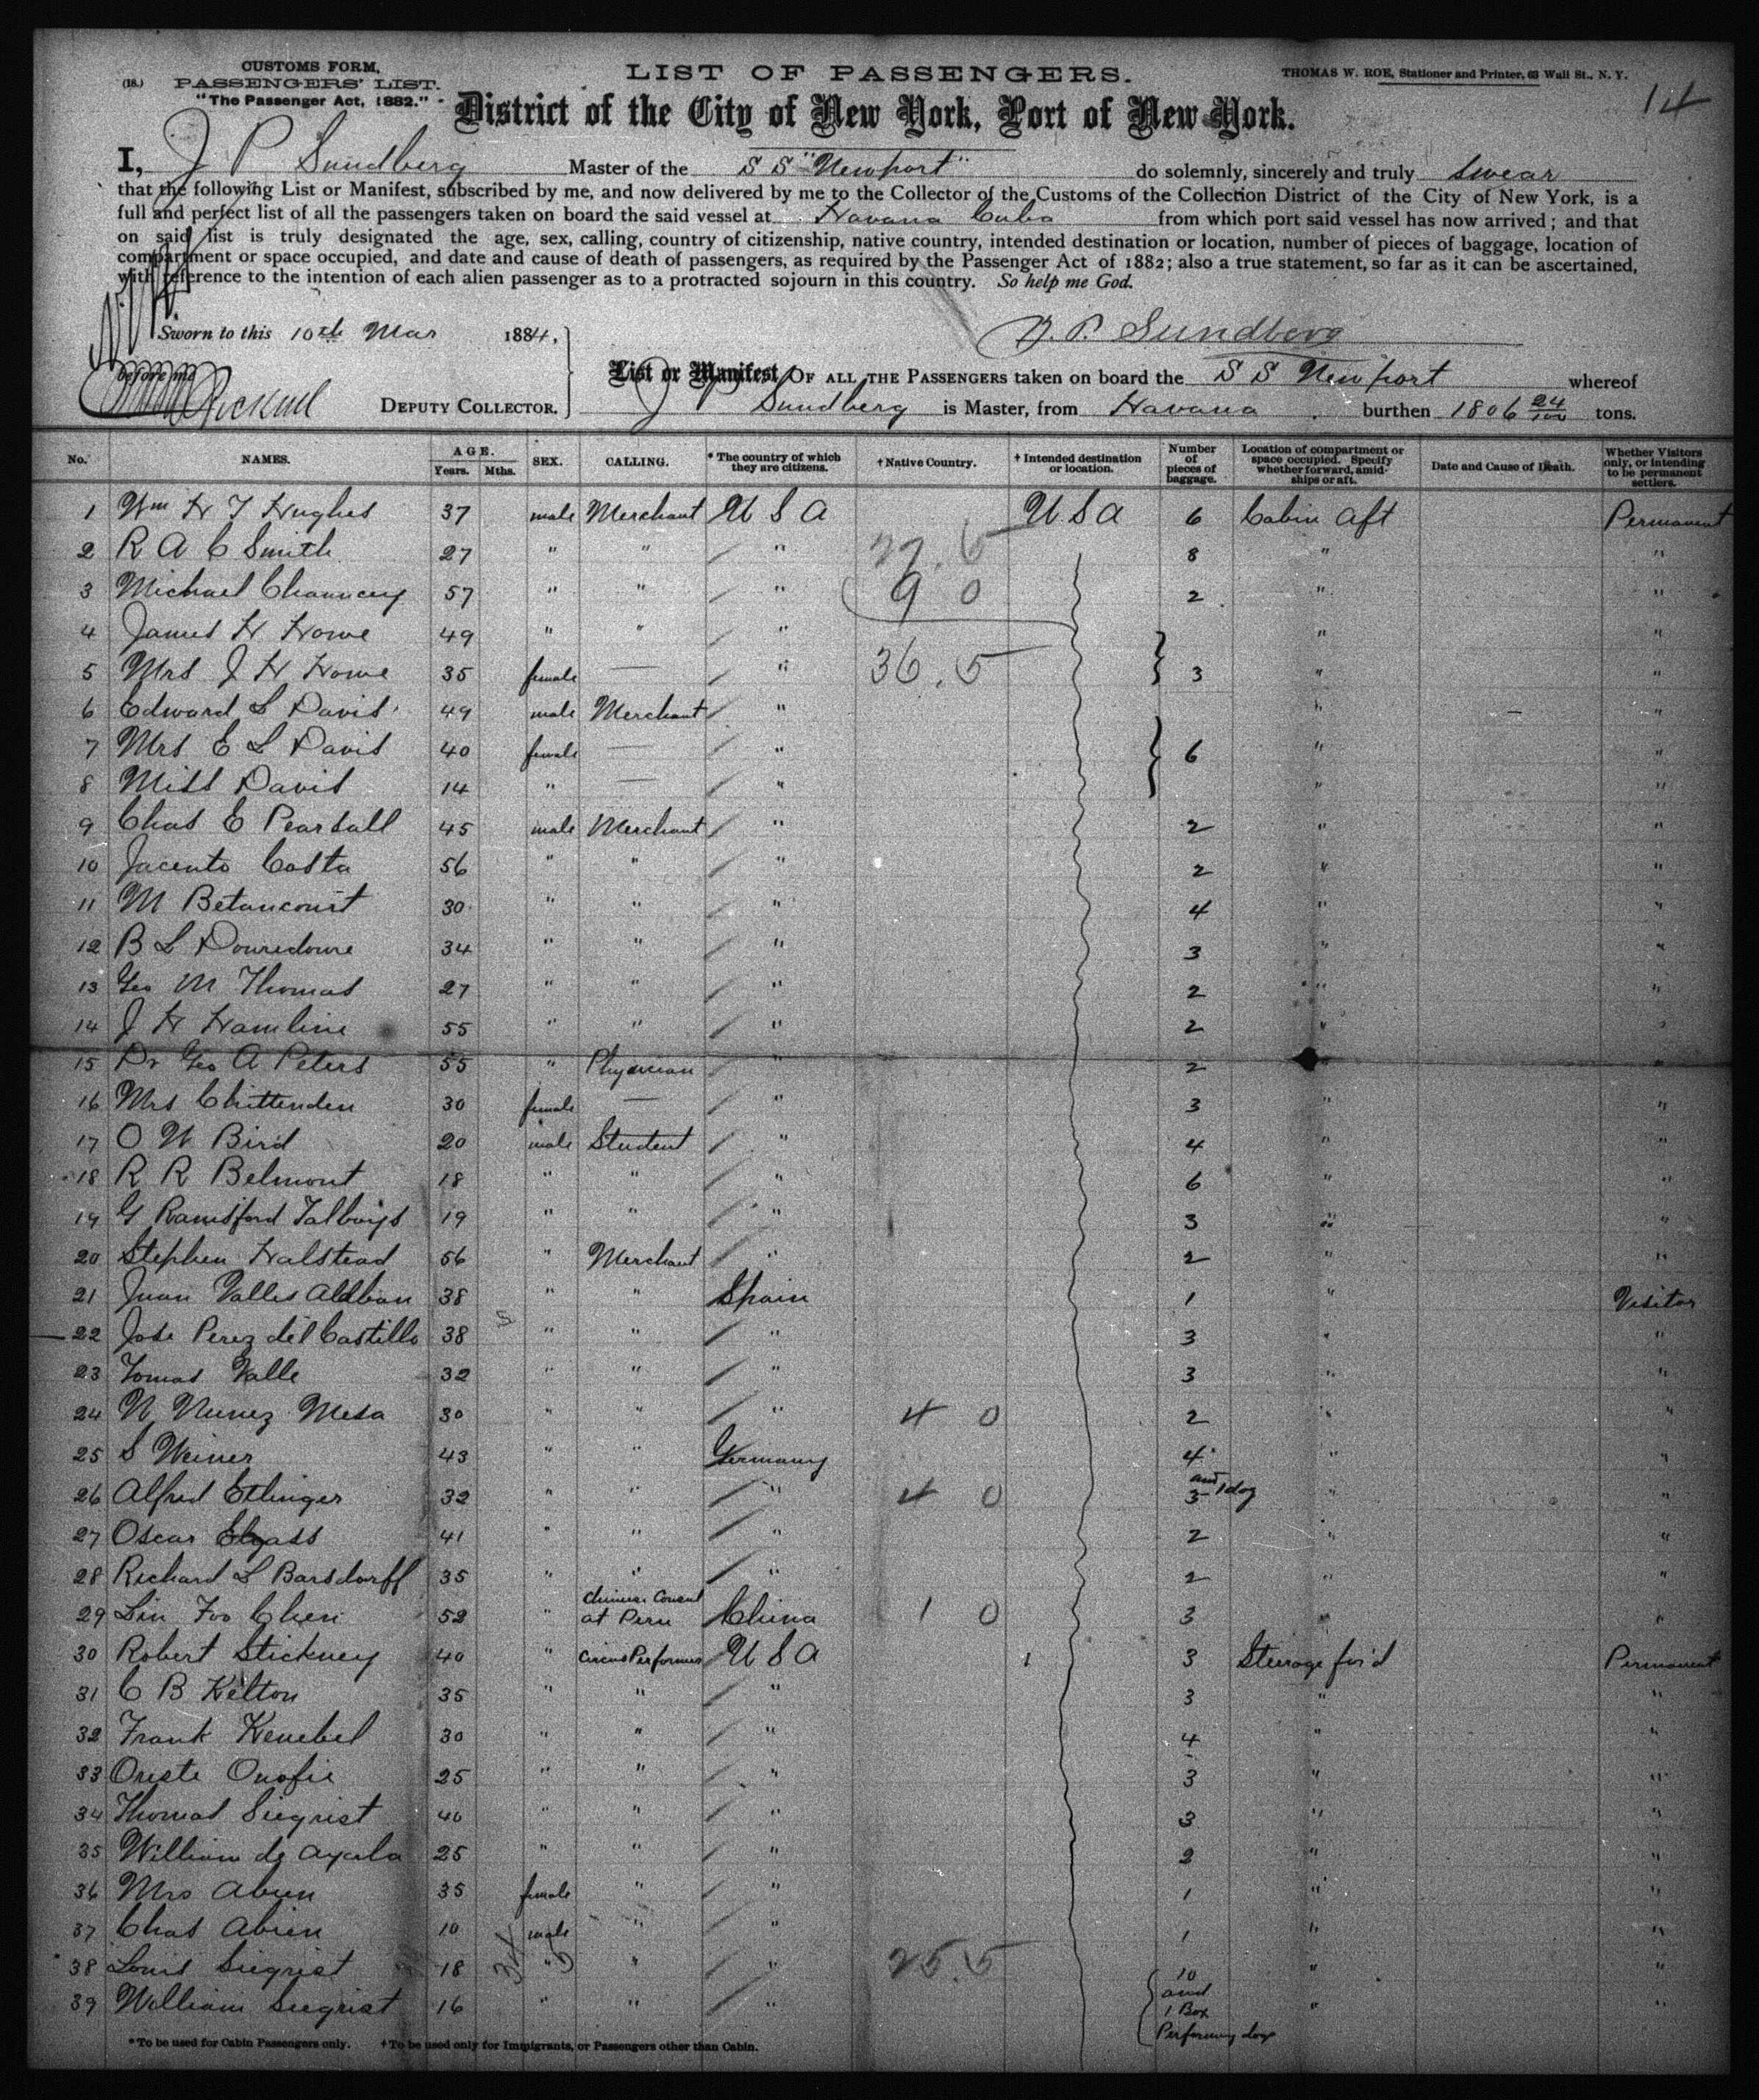 CUSTOMS FORM,
(18.) PASSENGERS' LIST.
"The Passenger Act, 1882."
LIST OF PASSENGERS.
THOMAS W. ROE, Stationer and Printer, 63 Wall St., N. Y.
14
District of the City of New York, Port of New York.
I, J P Sundberg Master of the S S "Newport" do solemnly, sincerely and truly swear
that the following List or Manifest, subscribed by me, and now delivered by me to the Collector of the Customs of the Collection District of the City of New York, is a
full and perfect list of all the passengers taken on board the said vessel at Havana Cuba from which port said vessel has now arrived; and that
on said list is truly designated the age, sex, calling, country of citizenship, native country, intended destination or location, number of pieces of baggage, location of
compartment or space occupied, and date and cause of death of passengers, as required by the Passenger Act of 1882; also a true statement, so far as it can be ascertained,
with reference to the intention of each alien passenger as to a protracted sojourn in this country. So help me God.
Sworn to this 10th Mar 1884,
J. P. Sundberg
before me
DEPUTY COLLECTOR.
List or Manifest OF ALL THE PASSENGERS taken on board the S S Newport whereof
J P Sundberg is Master, from Havana burthen 1806 24/100 tons.
No. NAMES. AGE. Years. Mths. SEX. CALLING. * The country of which they are citizens. † Native Country. † Intended destination or location. Number of pieces of baggage. Location of compartment or space occupied. Specify whether forward, amidships or aft. Date and Cause of Death. Whether Visitors only, or intending to be permanent settlers.
1 Wm H T Hughes 37 male Merchant U S A U S A 6 Cabin Aft Permanent
2 R A C Smith 27 " " " 27.5 8 " "
3 Michael Chauncey 57 " " " 9 0 2 " "
4 James H Howe 49 " " " " "
5 Mrs J H Howe 35 female — " 36.5 3 " "
6 Edward L Davis 49 male Merchant " " "
7 Mrs E L Davis 40 female — " 6 " "
8 Miss Davis 14 " — " " "
9 Chas E Pearsall 45 male Merchant " 2 " "
10 Jacento Costa 56 " " " 2 " "
11 M Betancourt 30 " " " 4 " "
12 B L 34 " " " 3 " "
13 Geo M Thomas 27 " " " 2 " "
14 J H Hamline 55 " " " 2 " "
15 Dr Geo A Peters 55 " Physician " 2 " "
16 Mrs Chittenden 30 female — " 3 " "
17 O W Bird 20 male Student " 4 " "
18 R R Belmont 18 " " " 6 " "
19 G Ransford Talboys 19 " " " 3 " "
20 Stephen Halstead 56 " Merchant " 2 " "
21 Juan Valles 38 " " Spain 1 " Visitor
22 Jose Perez del Castillo 38 " " " 3 " "
23 Tomas Valle 32 " " " 3 " "
24 N Nunez Mesa 30 " " " 4 0 2 " "
25 S Weiner 43 " " Germany 4 " "
26 Alfred Etlinger 32 " " " 4 0 3 and 1 dog " "
27 Oscar 41 " " " 2 " "
28 Richard L Barsdorff 35 " " " 2 " "
29 Lin Foo Chen 52 " Chinese Consul at Peru China 1 0 3 "
30 Robert Stickney 40 " Circus Performer U S A 3 Steerage for'd Permanent
31 C B Kelton 35 " " " 3 " "
32 Frank 30 " " " 4 " "
33 Oreste Onofie 25 " " " 3 " "
34 Thomas Siegrist 40 " " " 3 " "
35 William de Ayala 25 " " " 2 " "
36 Mrs Abien 35 female " " 1 " "
37 Chas Abien 10 male " " 1 " "
38 Louis Siegrist 18 " " " 25.5 " "
39 William Siegrist 16 " " " 10 and 1 Box Performing dogs " "
* To be used for Cabin Passengers only. † To be used only for Immigrants, or Passengers other than Cabin.